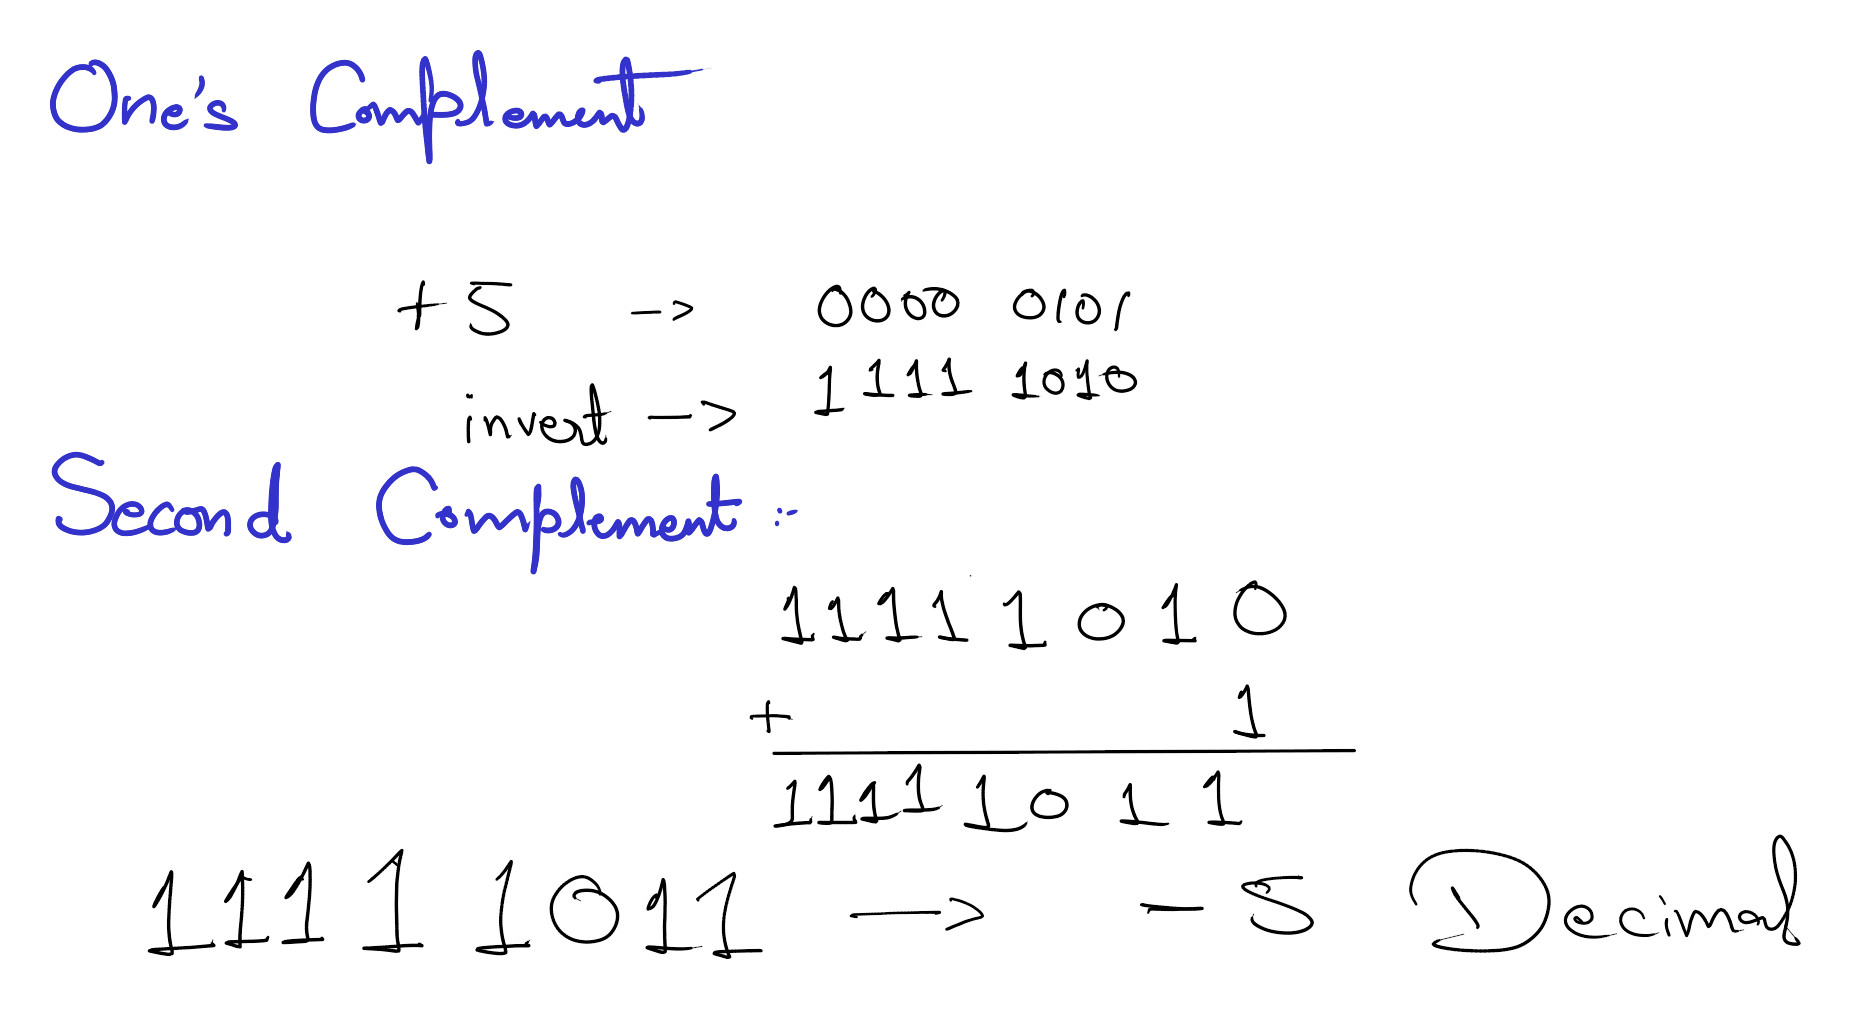 One's Complement
+5 -> 0000 0101
invert -> 1111 1010
Second Complement :-
11111010
+ 1
11111011
1111 1011 -> -5 Decimal